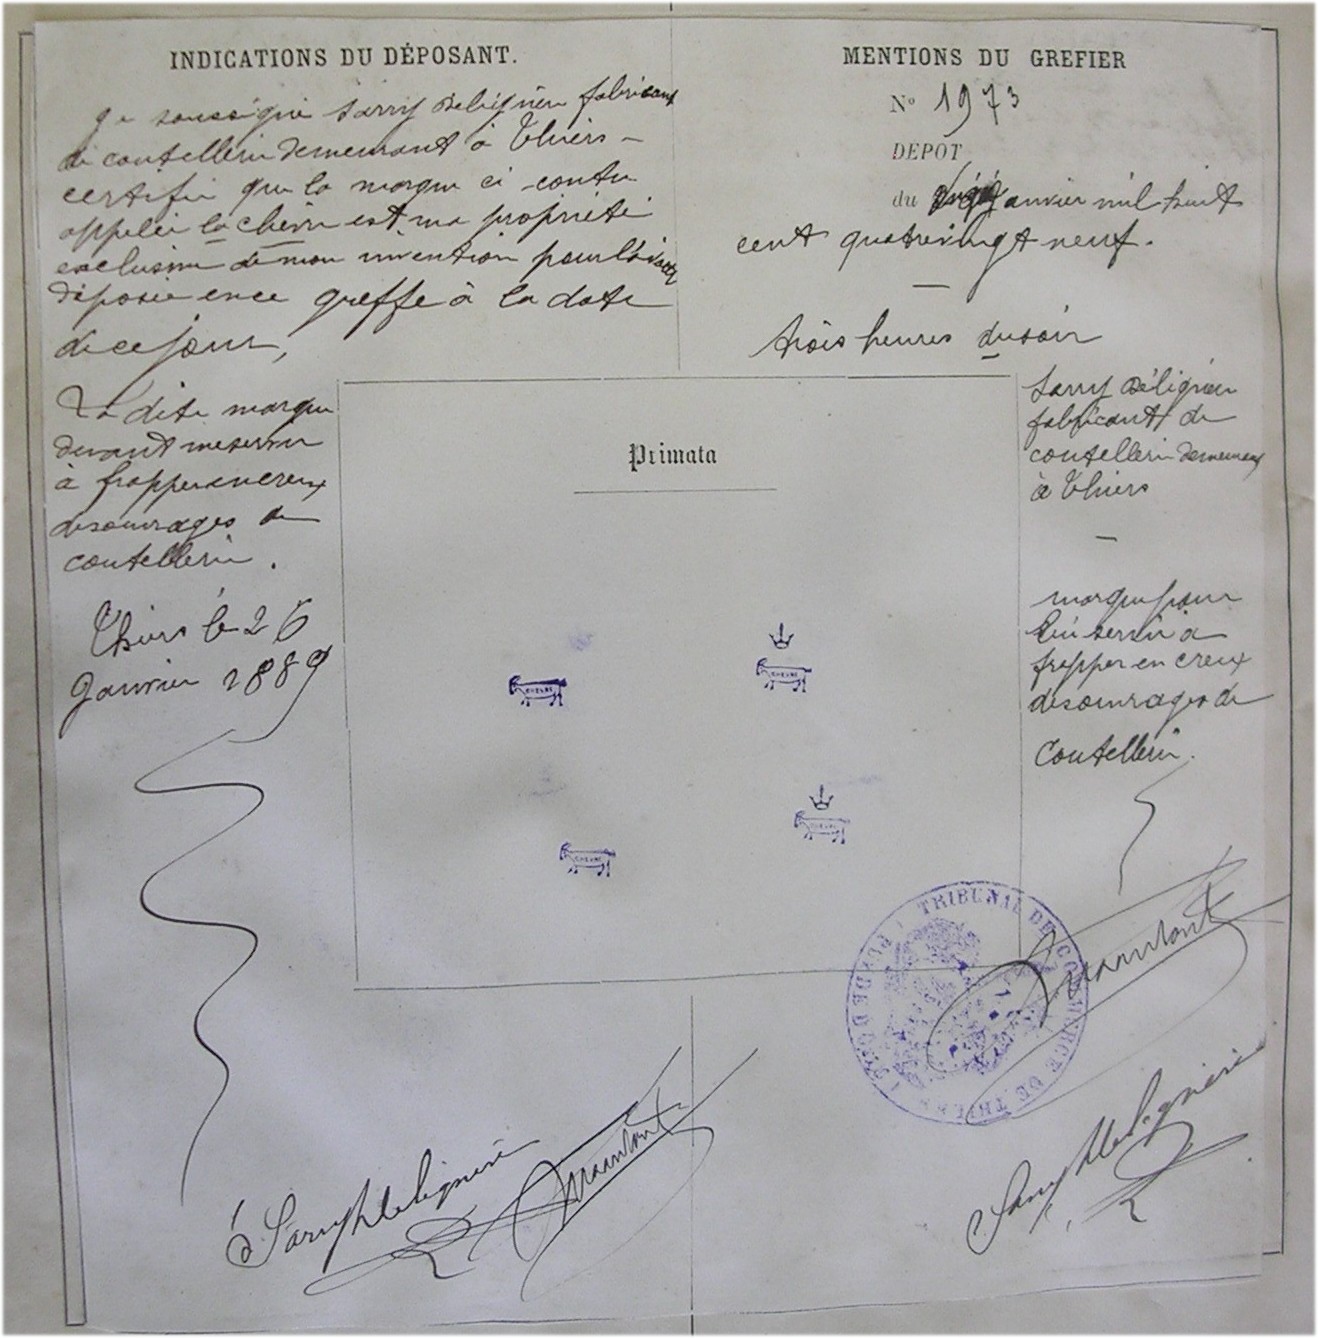 INDICATIONS DU DÉPOSANT.
Je soussigné Sarry Délignère fabricant
de coutellerie demeurant à Thiers
certifie que la marque ci-contre
appelée la chèvre est ma propriété
exclusive de mon invention pour l'avoir
déposée en ce greffe à la date
de ce jour,
La dite marque
devant me servir
à frapper en creux
des ouvrages de
coutellerie.
Thiers le 26
Janvier 1889
MENTIONS DU GREFIER
No 1973
DEPOT
du Janvier mil huit
cent quatrevingt neuf.
trois heures du soir
Sarry Délignère
fabricant de
coutellerie demeurant
à Thiers
marque pour
lui servir à
frapper en creux
des ouvrages de
Coutellerie.
Primata
CHEVRE
CHEVRE
CHEVRE
CHEVRE
TRIBUNAL DE COMMERCE DE THIERS
PUY DE DOME
Sarry Delignère
Sarry Delignère